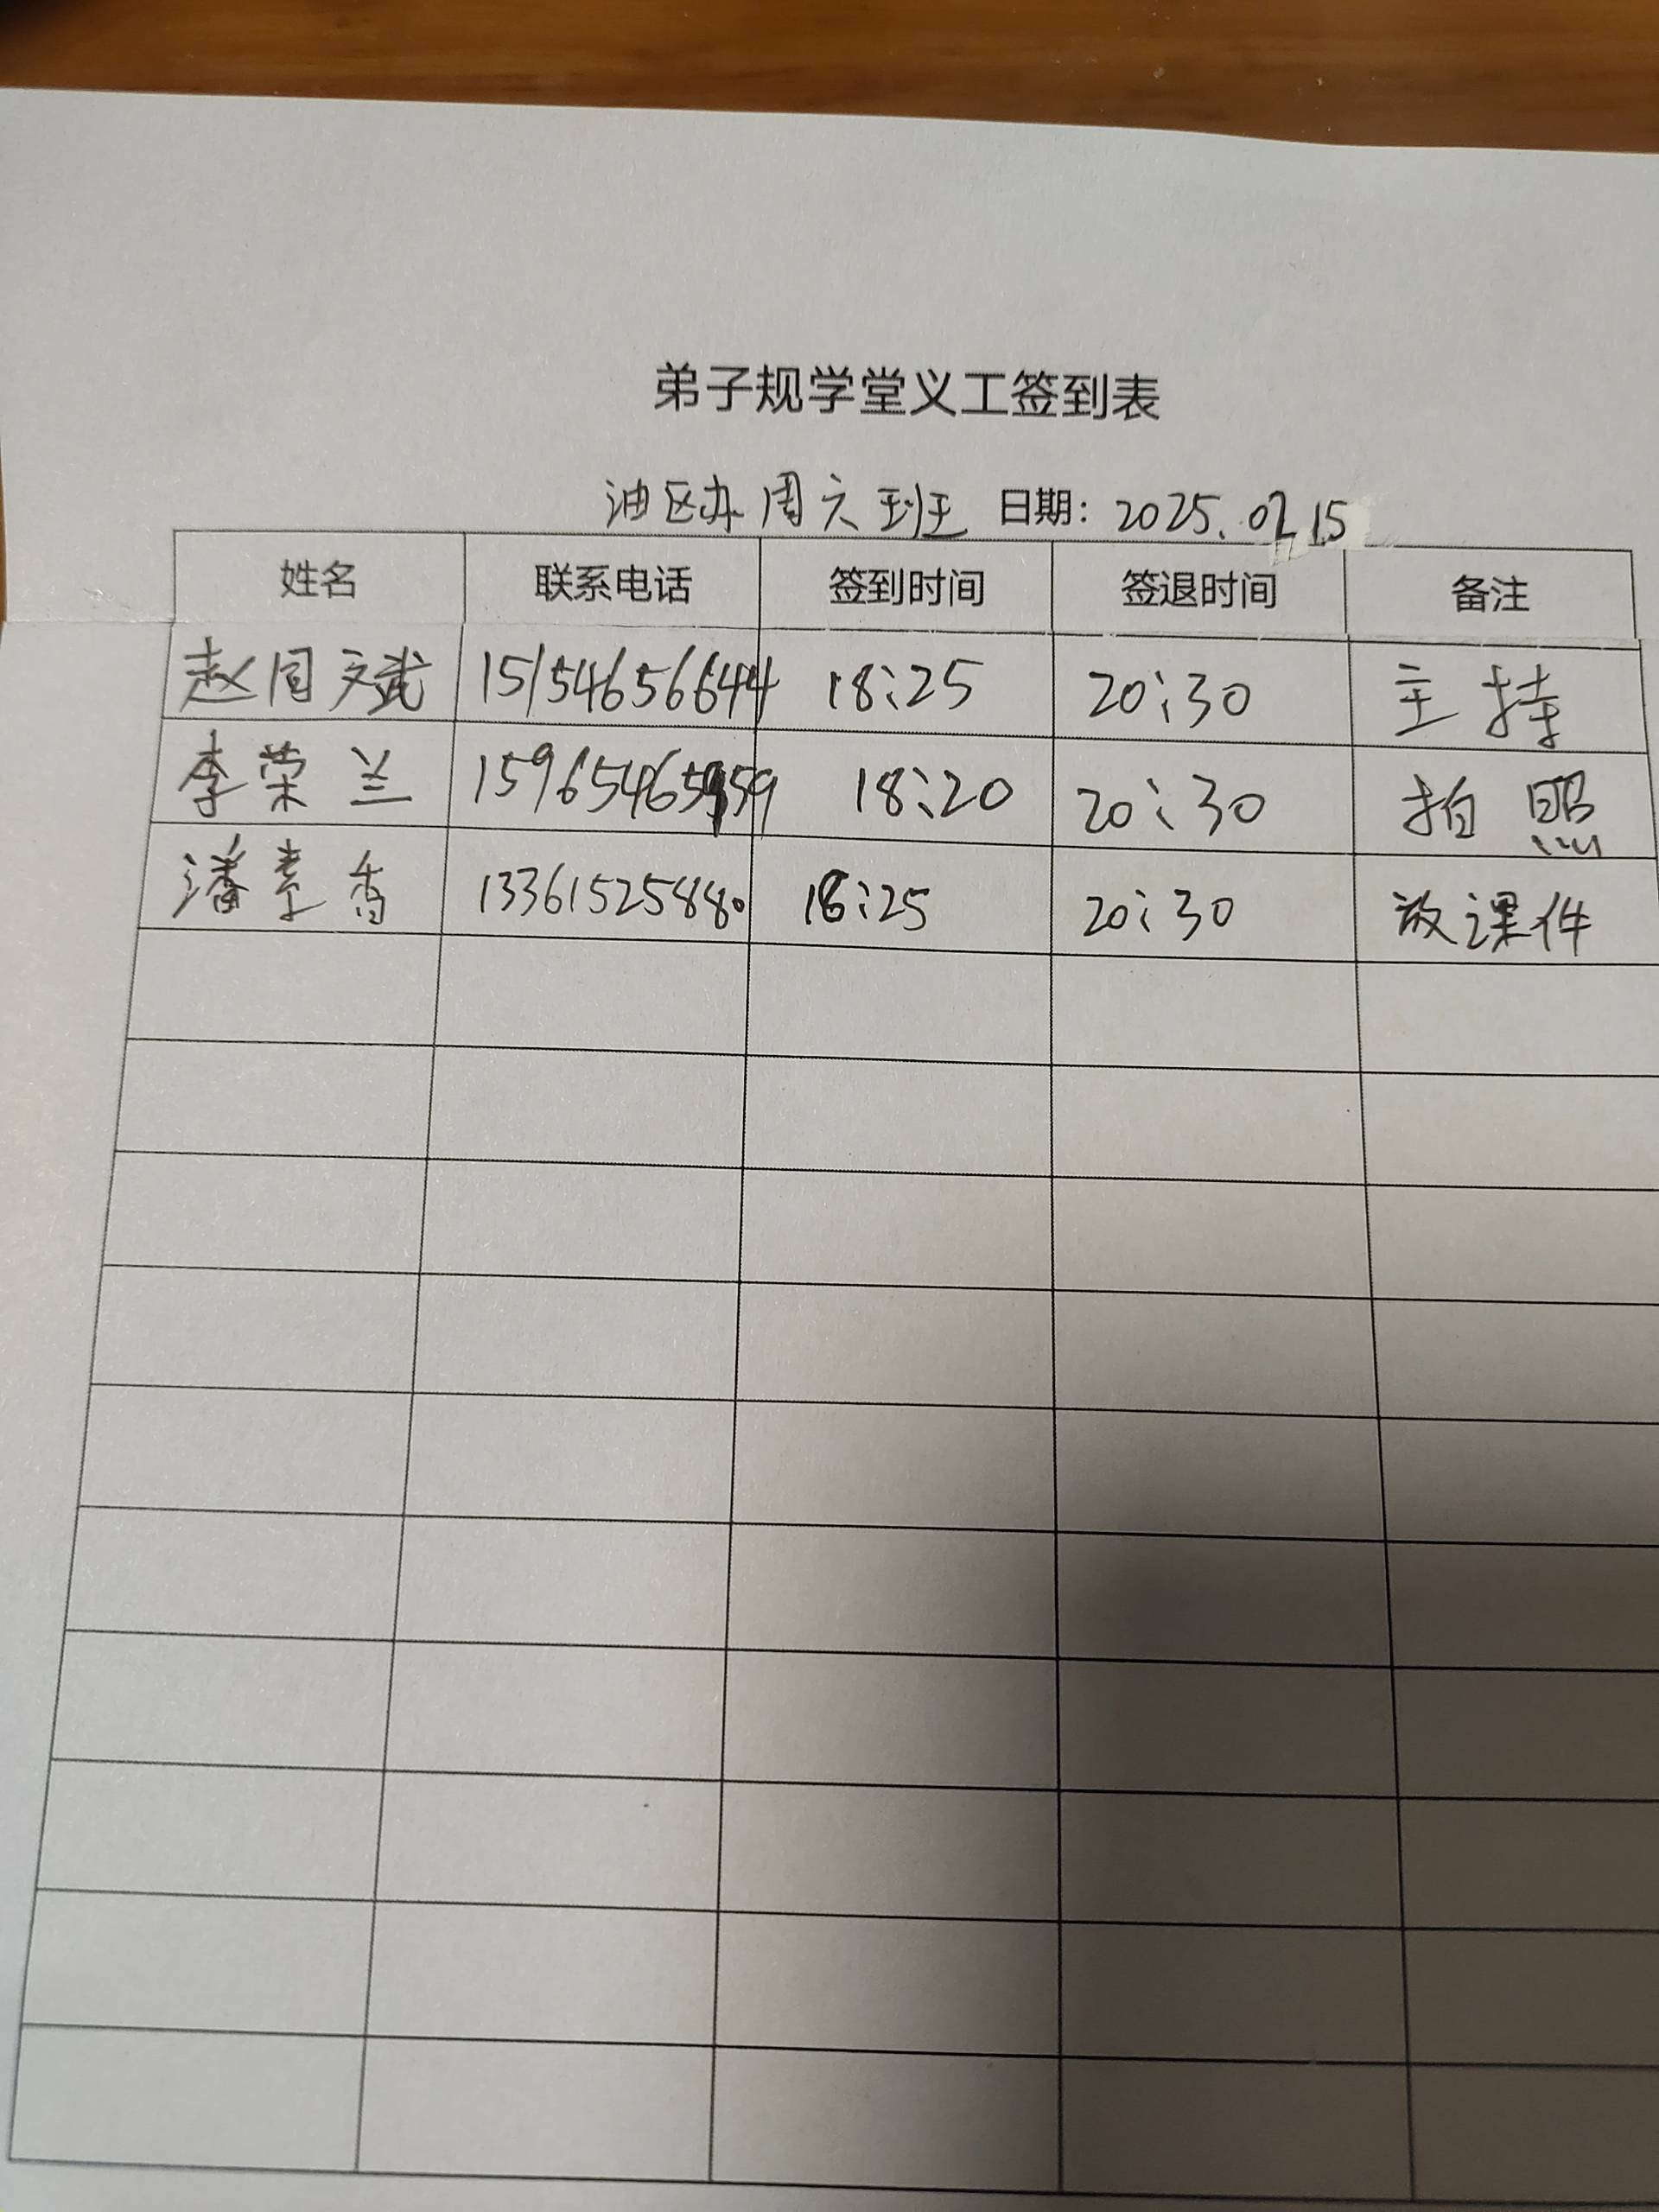 弟子规学堂义工签到表
油区办周六班 日期：2025.02.15
姓名 联系电话 签到时间 签退时间 备注
赵国斌 15154656644 18:25 20:30 主持
李荣兰 18:20 20:30 拍照
潘素香 13361525880 18:25 20:30 放课件